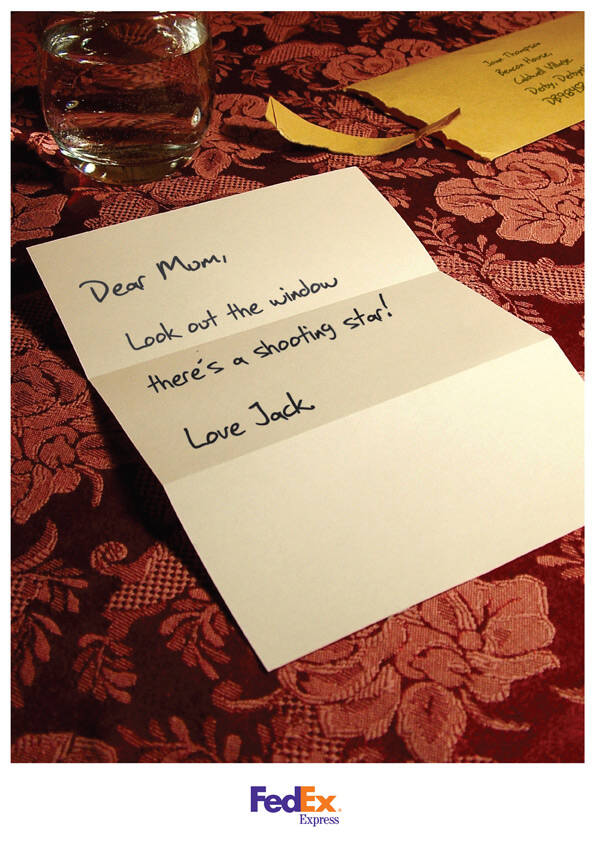 Jane Thompson
Beacon House,
Caldwell Village
Derby, Derbys
Dear Mum,
Look out the window
there's a shooting star!
Love Jack.
FedEx®
Express